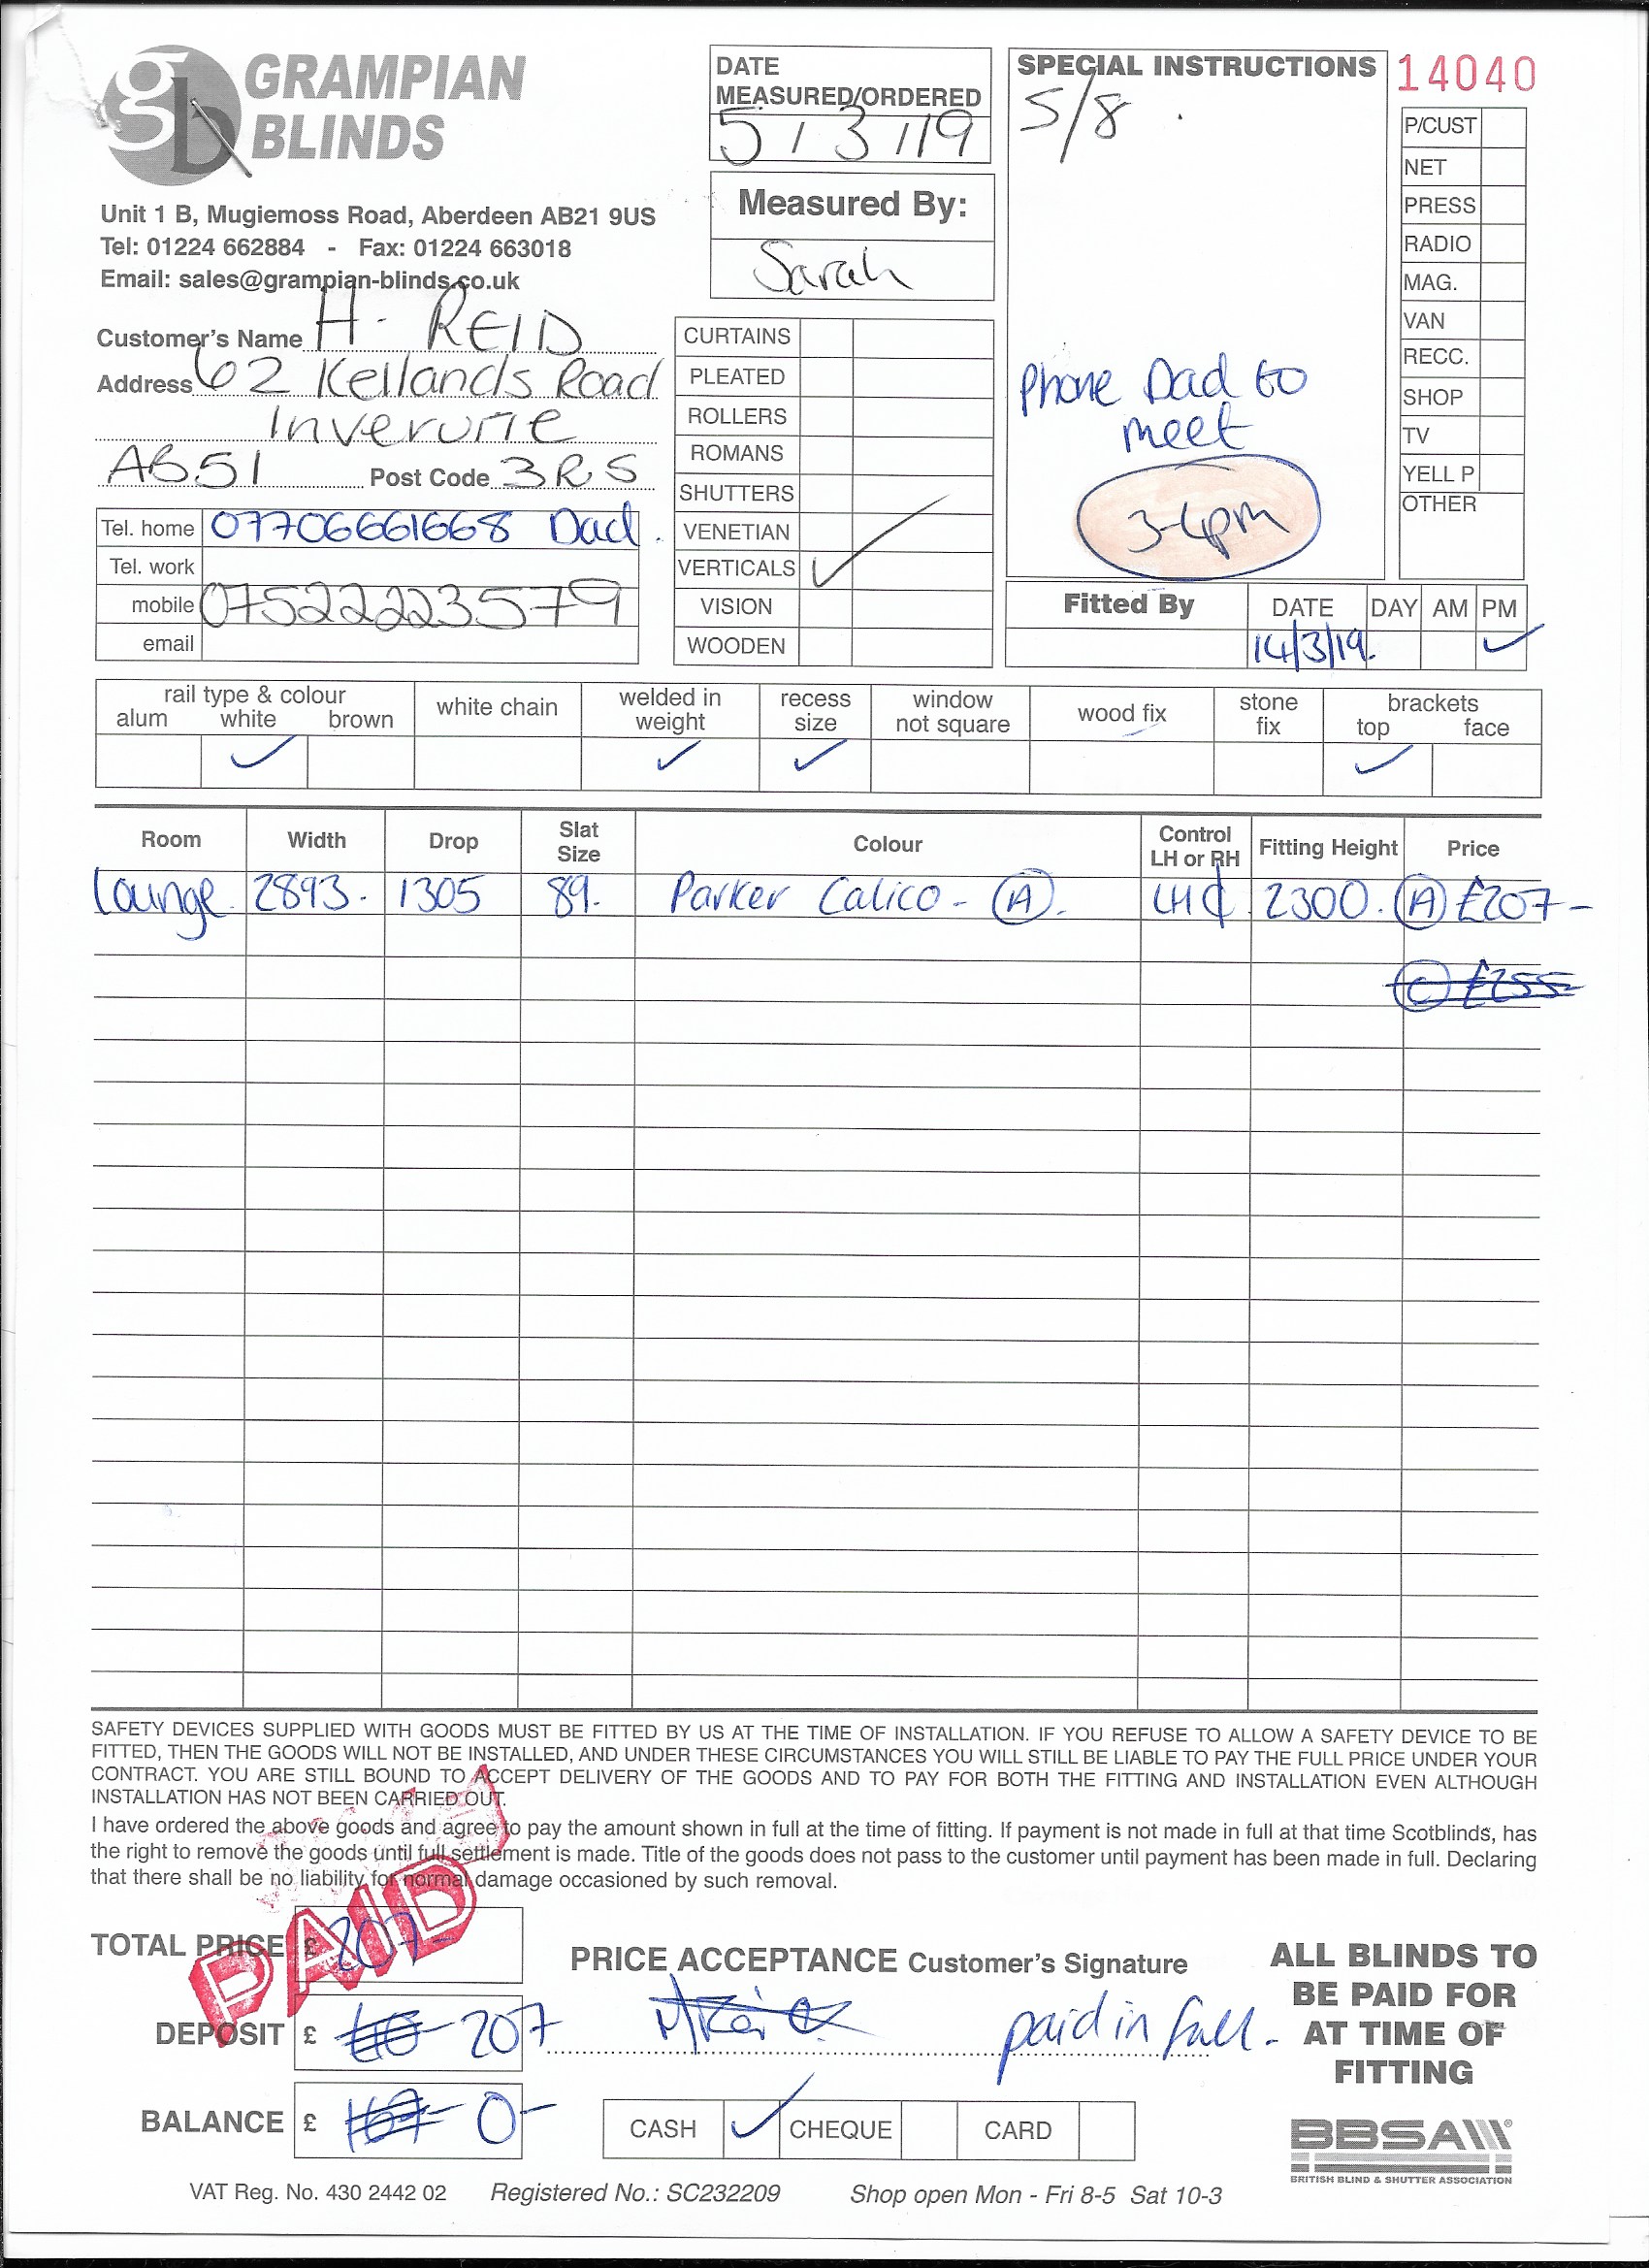 GRAMPIAN
BLINDS
Unit 1 B, Mugiemoss Road, Aberdeen AB21 9US
Tel: 01224 662884 - Fax: 01224 663018
Email: sales@grampian-blinds.co.uk
Customer's Name H. REID
Address 62 Kellands Road
Inverurie
AB51 Post Code 3RS
Tel. home 07706661668 Dad.
Tel. work
mobile 07522223579
email
DATE
MEASURED/ORDERED
5/3/19
Measured By:
Sarah
CURTAINS
PLEATED
ROLLERS
ROMANS
SHUTTERS
VENETIAN
VERTICALS ✓
VISION
WOODEN
SPECIAL INSTRUCTIONS
5/8.
Phone Dad to
meet
3-4pm
14040
P/CUST
NET
PRESS
RADIO
MAG.
VAN
RECC.
SHOP
TV
YELL P
OTHER
Fitted By DATE DAY AM PM
14/3/19. ✓
rail type & colour white chain welded in weight recess size window not square wood fix stone fix brackets
alum white brown top face
✓ ✓ ✓ ✓
Room Width Drop Slat Size Colour Control LH or RH Fitting Height Price
Lounge. 2893. 1305 89. Parker Calico - (A). LH 2300. (A) £207-
(C) £255-
SAFETY DEVICES SUPPLIED WITH GOODS MUST BE FITTED BY US AT THE TIME OF INSTALLATION. IF YOU REFUSE TO ALLOW A SAFETY DEVICE TO BE
FITTED, THEN THE GOODS WILL NOT BE INSTALLED, AND UNDER THESE CIRCUMSTANCES YOU WILL STILL BE LIABLE TO PAY THE FULL PRICE UNDER YOUR
CONTRACT. YOU ARE STILL BOUND TO ACCEPT DELIVERY OF THE GOODS AND TO PAY FOR BOTH THE FITTING AND INSTALLATION EVEN ALTHOUGH
INSTALLATION HAS NOT BEEN CARRIED OUT.
I have ordered the above goods and agree to pay the amount shown in full at the time of fitting. If payment is not made in full at that time Scotblinds, has
the right to remove the goods until full settlement is made. Title of the goods does not pass to the customer until payment has been made in full. Declaring
that there shall be no liability for normal damage occasioned by such removal.
PAID
TOTAL PRICE £ 207-
DEPOSIT £ 207
BALANCE £ 0-
PRICE ACCEPTANCE Customer's Signature
paid in full.
CASH ✓ CHEQUE CARD
ALL BLINDS TO
BE PAID FOR
AT TIME OF
FITTING
BBSA
BRITISH BLIND & SHUTTER ASSOCIATION
VAT Reg. No. 430 2442 02 Registered No.: SC232209 Shop open Mon - Fri 8-5 Sat 10-3